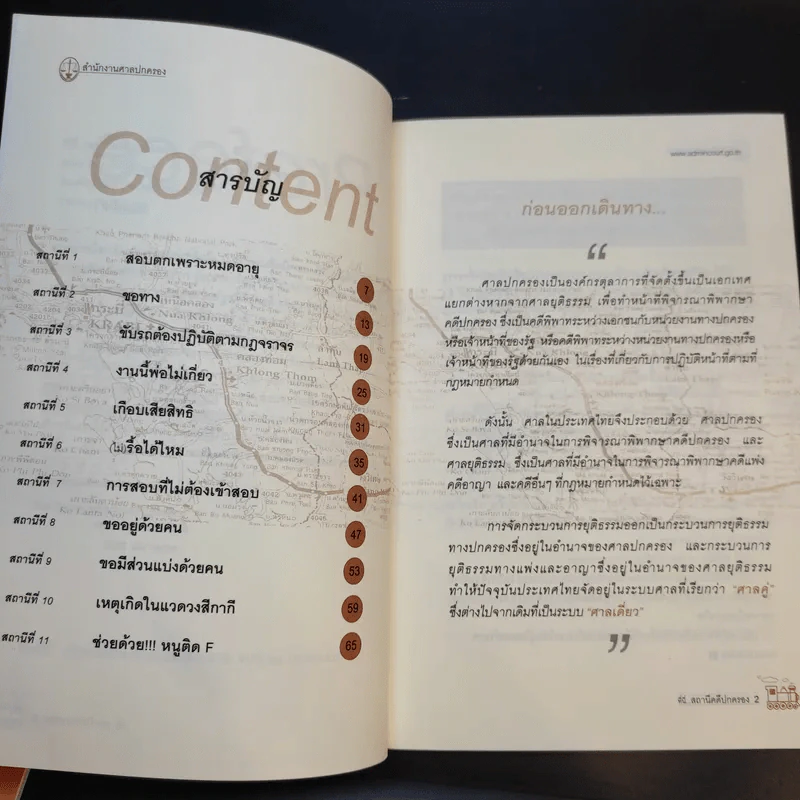 สำนักงานศาลปกครอง
Content
สารบัญ
สถานีที่ 1 สอบตกเพราะหมดอายุ 7
สถานีที่ 2 ขอทาง 13
สถานีที่ 3 ขับรถต้องปฏิบัติตามกฎจราจร 19
สถานีที่ 4 งานนี้พ่อไม่เกี่ยว 25
สถานีที่ 5 เกือบเสียสิทธิ 31
สถานีที่ 6 (ไม่)รื้อได้ไหม 35
สถานีที่ 7 การสอบที่ไม่ต้องเข้าสอบ 41
สถานีที่ 8 ขออยู่ด้วยคน 47
สถานีที่ 9 ขอมีส่วนแบ่งด้วยคน 53
สถานีที่ 10 เหตุเกิดในแวดวงสีกากี 59
สถานีที่ 11 ช่วยด้วย!!! หนูติด F 65
www.admincourt.go.th
ก่อนออกเดินทาง...
“
ศาลปกครองเป็นองค์กรตุลาการที่จัดตั้งขึ้นเป็นเอกเทศ
แยกต่างหากจากศาลยุติธรรม เพื่อทำหน้าที่พิจารณาพิพากษา
คดีปกครอง ซึ่งเป็นคดีพิพาทระหว่างเอกชนกับหน่วยงานทางปกครอง
หรือเจ้าหน้าที่ของรัฐ หรือคดีพิพาทระหว่างหน่วยงานทางปกครองหรือ
เจ้าหน้าที่ของรัฐด้วยกันเอง ในเรื่องที่เกี่ยวกับการปฏิบัติหน้าที่ตามที่
กฎหมายกำหนด
ดังนั้น ศาลในประเทศไทยจึงประกอบด้วย ศาลปกครอง
ซึ่งเป็นศาลที่มีอำนาจในการพิจารณาพิพากษาคดีปกครอง และ
ศาลยุติธรรม ซึ่งเป็นศาลที่มีอำนาจในการพิจารณาพิพากษาคดีแพ่ง
คดีอาญา และคดีอื่นๆ ที่กฎหมายกำหนดไว้เฉพาะ
การจัดกระบวนการยุติธรรมออกเป็นกระบวนการยุติธรรม
ทางปกครองซึ่งอยู่ในอำนาจของศาลปกครอง และกระบวนการ
ยุติธรรมทางแพ่งและอาญาซึ่งอยู่ในอำนาจของศาลยุติธรรม
ทำให้ปัจจุบันประเทศไทยจัดอยู่ในระบบศาลที่เรียกว่า “ศาลคู่”
ซึ่งต่างไปจากเดิมที่เป็นระบบ “ศาลเดี่ยว”
”
สถานีคดีปกครอง 2